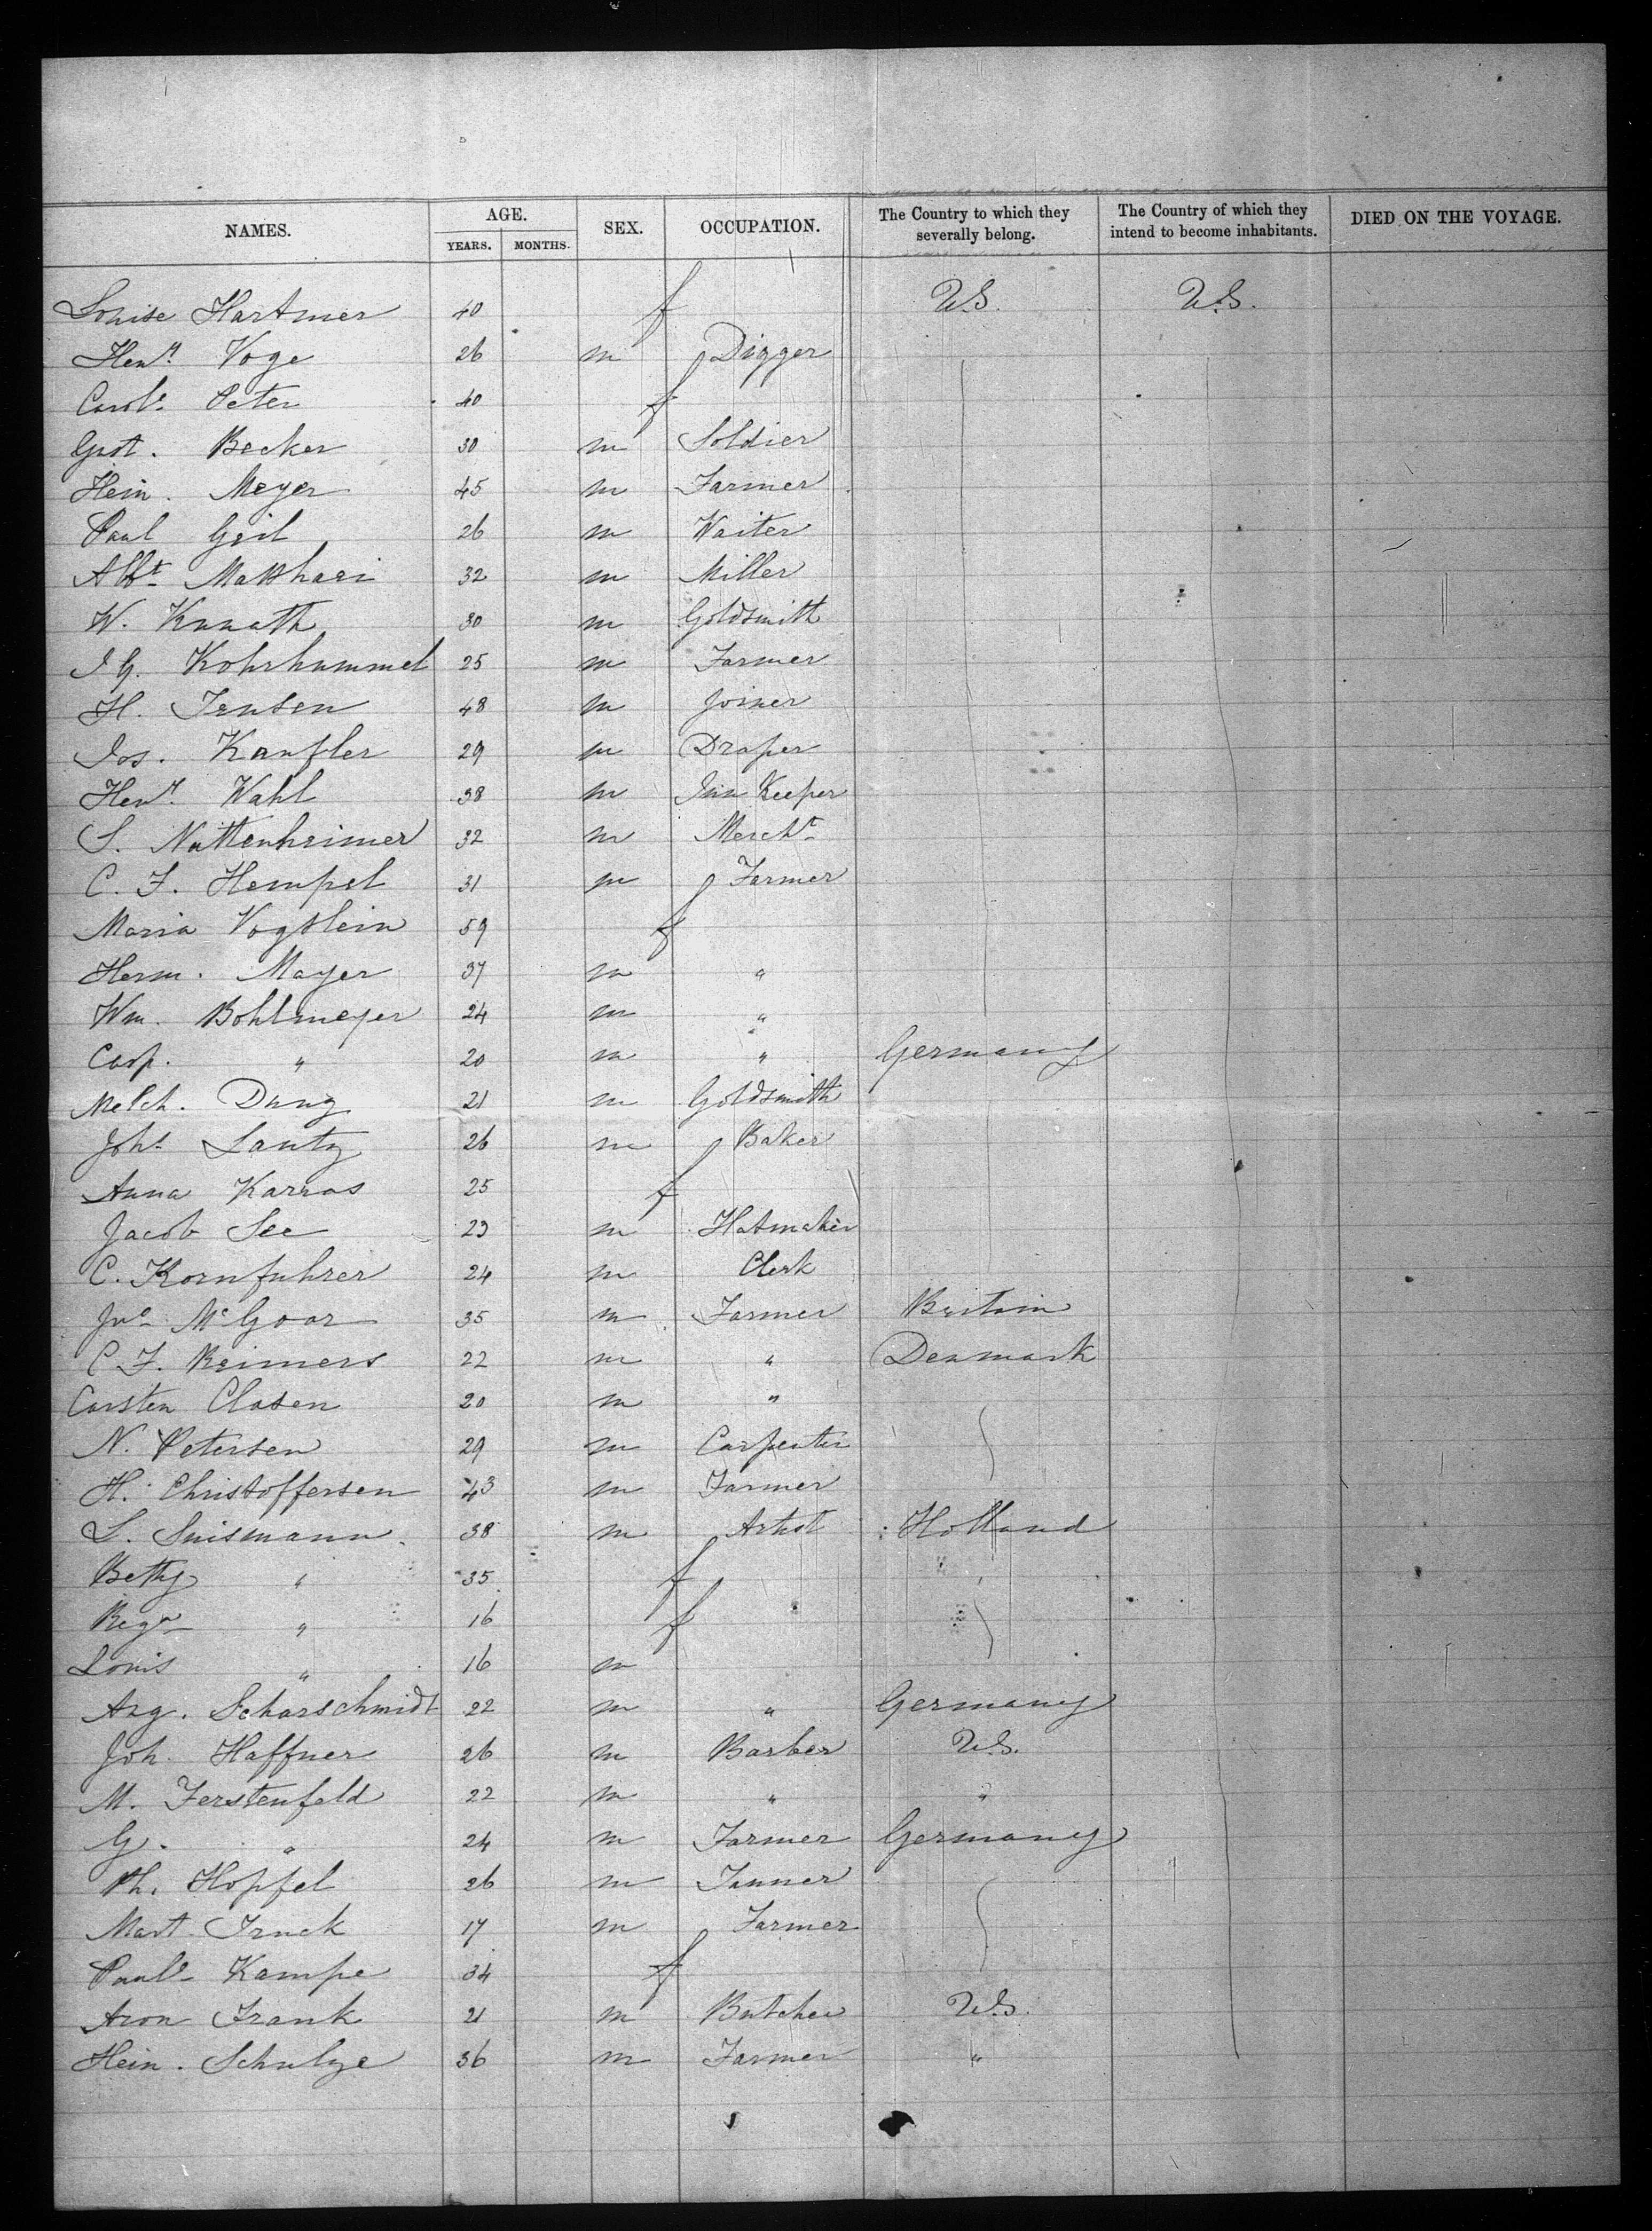 NAMES. AGE. YEARS. MONTHS. SEX. OCCUPATION. The Country to which they severally belong. The Country of which they intend to become inhabitants. DIED ON THE VOYAGE.
Louise Hartmer 40 f U.S. U.S.
Heny. Voge 26 m Digger
Carole. Peter 40 f
Gust. Becker 30 m Soldier
Hein. Meyer 45 m Farmer
Paul Geil 26 m Waiter
Albt. Matthaei 32 m Miller
W. Knauth 30 m Goldsmith
J G. Kohrhummel 25 m Farmer
H. Jensen 48 m Joiner
Jos. Kanfler 29 m Draper
Heny. Wahl 38 m Inn Keeper
S. Nattenheimer 32 m Mercht
C. F. Hempel 31 m Farmer
Maria Vogtlein 59 f
Herm. Mayer 37 m "
Wm. Bohlmeyer 24 m "
Casp. " 20 m " Germany
Melch. Dung 21 m Goldsmith
Johs Lautz 26 m Baker
Anna Karras 25 f
Jacob See 23 m Hatmaker
C. Kornfuhrer 24 m Clerk
Jno McGoar 35 m Farmer Britain
C F. Reimers 22 m " Denmark
Carsten Clasen 20 m "
N. Petersen 29 m Carpenter
H. Christoffersen 43 m Farmer
L. Suismann. 38 m Artist Holland
Betty " 35 f "
Rega " 16 f "
Louis " 16 m
Aug. Scharschmidt 22 m " Germany
Joh. Haffner 26 m Barber U.S.
M. Ferstenfeld 22 m " "
G. " 24 m Farmer Germany
Ph. Hopfel 26 m Tanner
Mart. Truck 17 m Farmer
Paule Kampe 34 f
Aron Frank 21 m Butcher U.S.
Hein. Schulze 36 m Farmer "